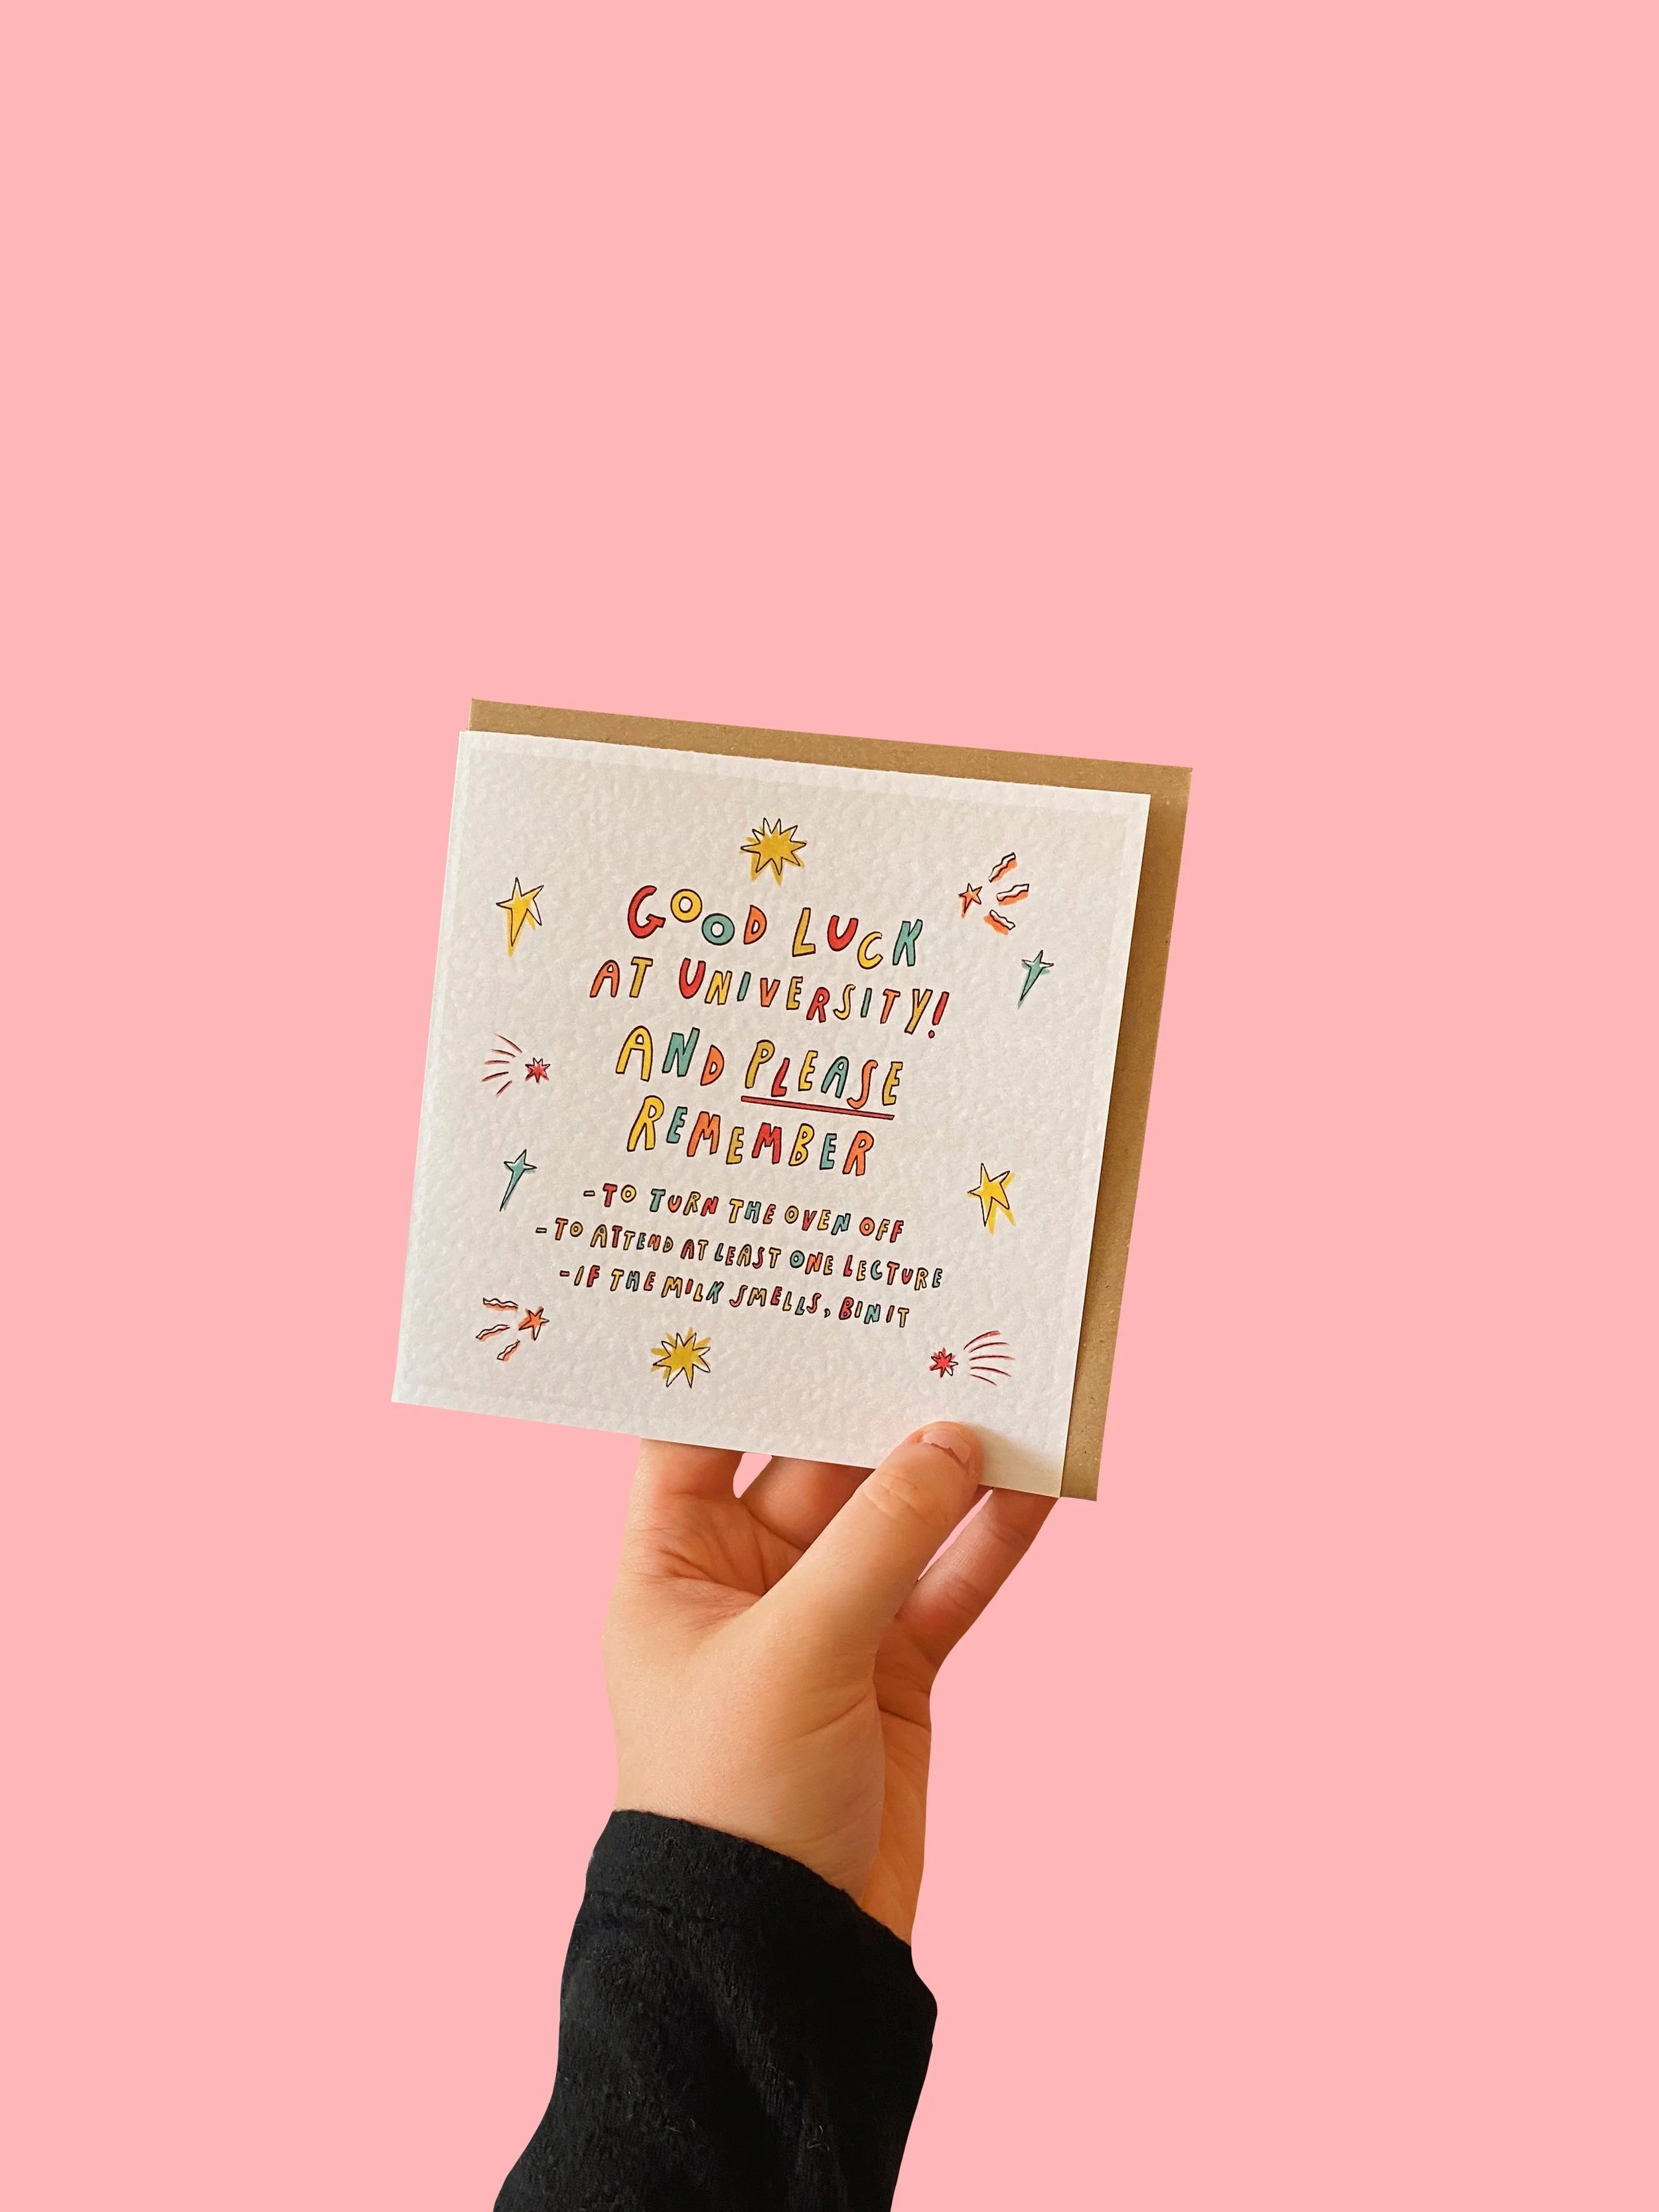 GOOD LUCK
AT UNIVERSITY!
AND PLEASE
REMEMBER
-TO TURN THE OVEN OFF
-TO ATTEND AT LEAST ONE LECTURE
-IF THE MILK SMELLS, BIN IT